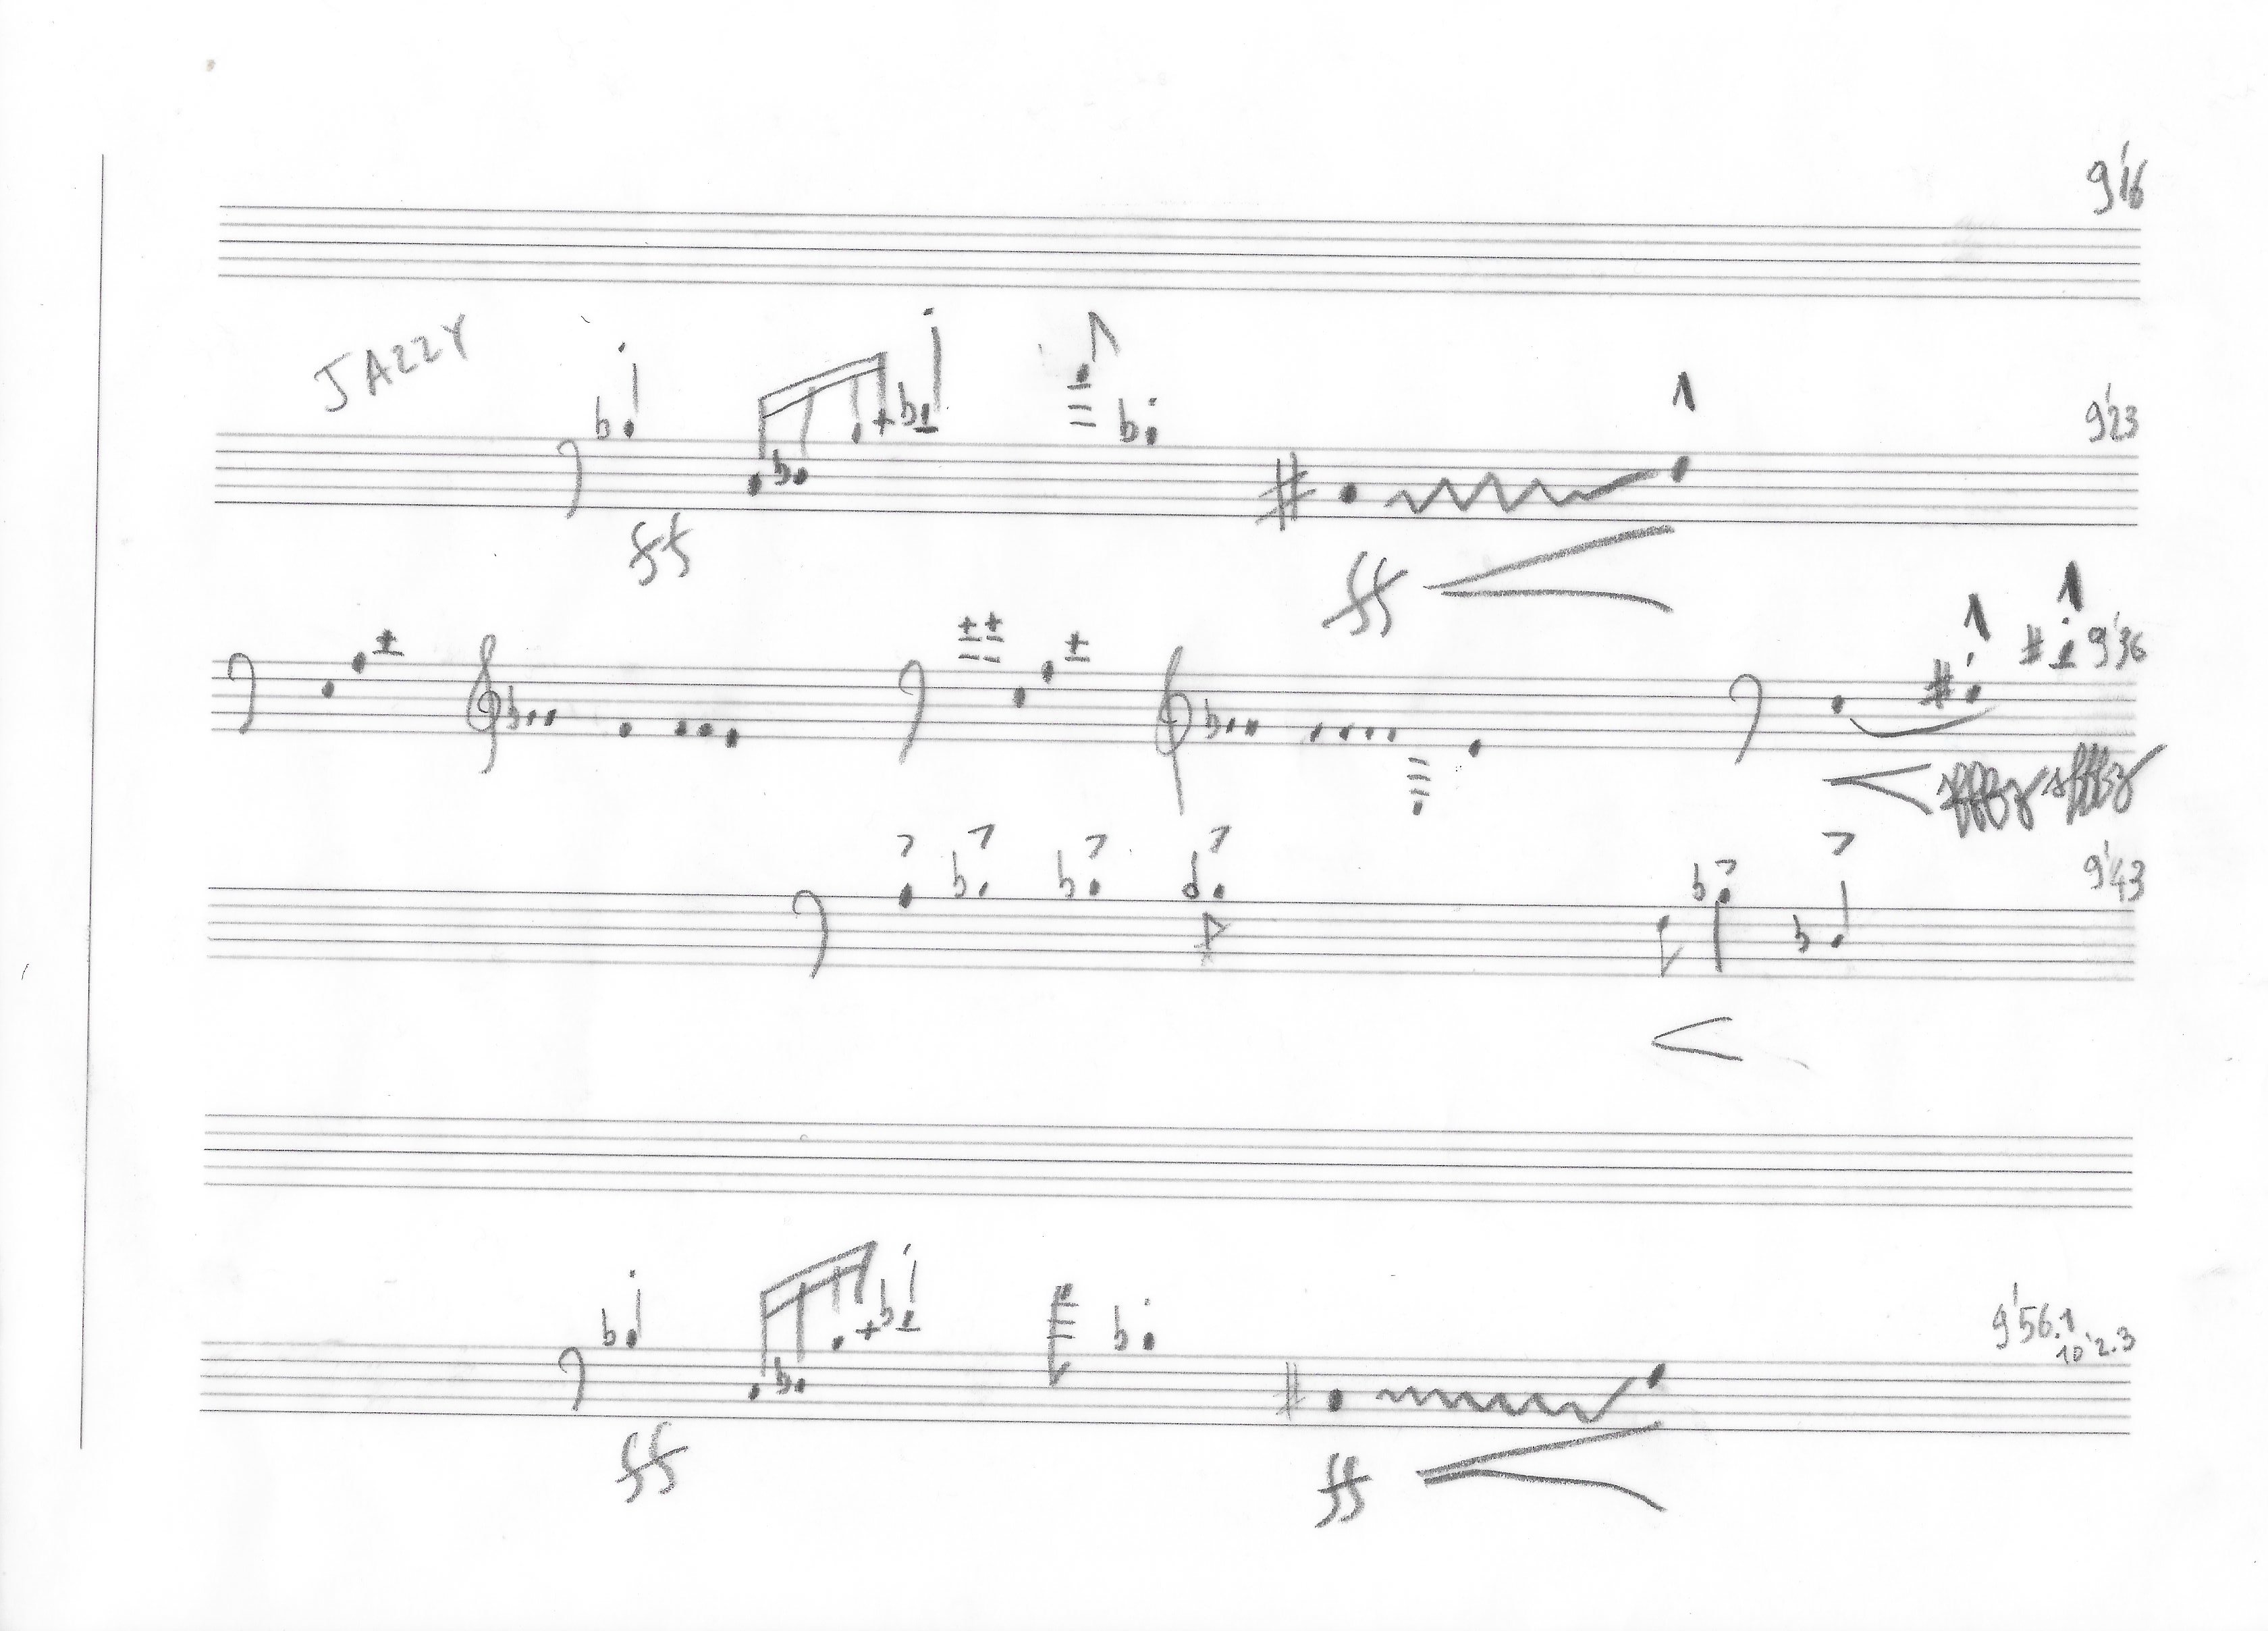 9'16
JAZZY
9'23
ff
ff
9'36
sfffz sfffz
9'43
9'56.1
10'2.3
ff
ff